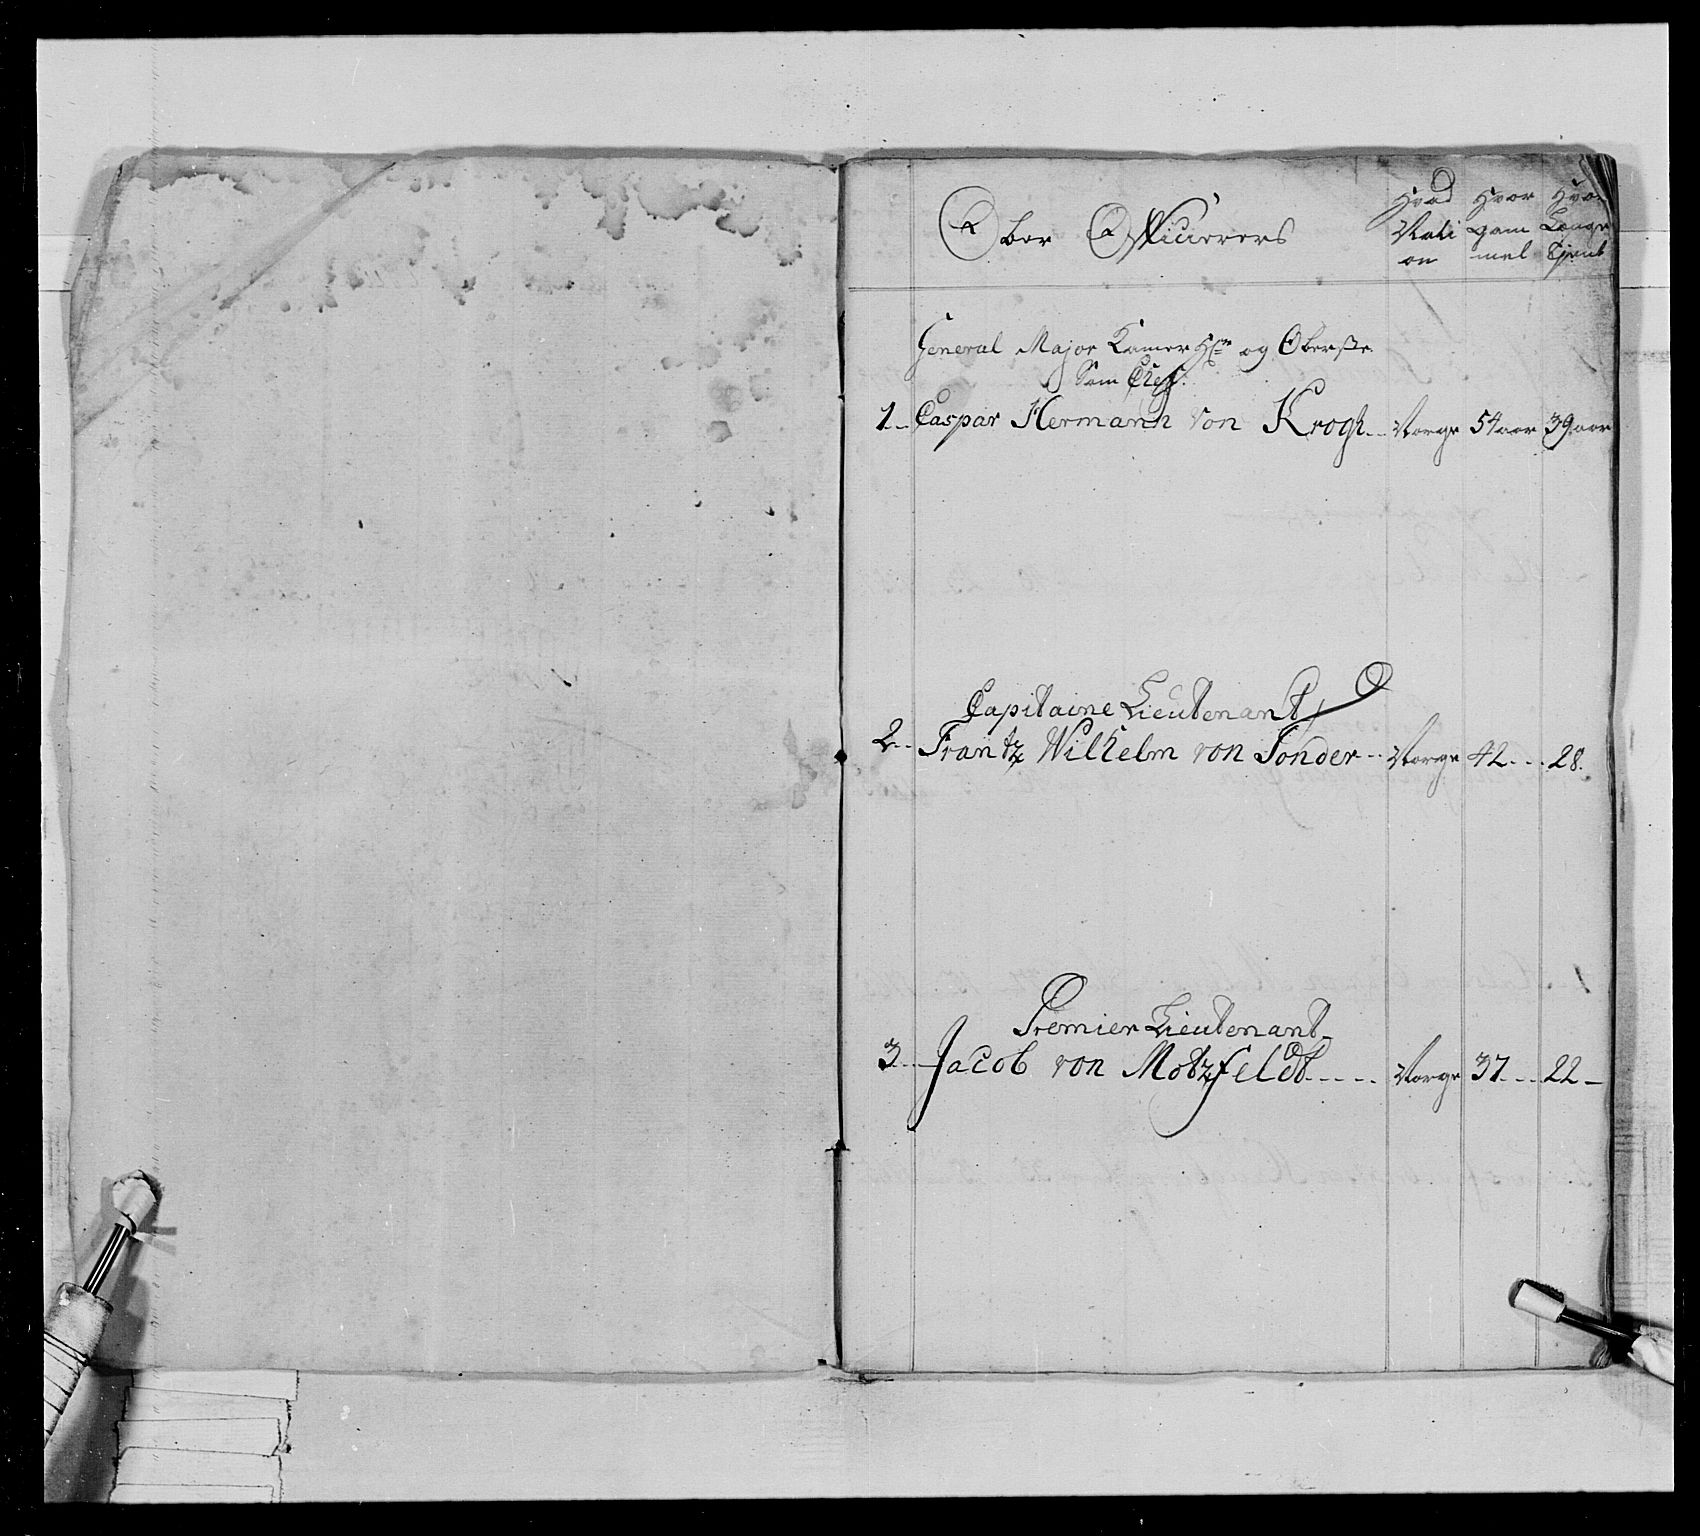 Ober Officierers
Hvad Nati on
Hvor gam mel
Hvor Længe Tjent
General Major Kamer Hr og Oberste
Som Chef.
1.. Caspar Hermann von Krogh.. Norge 54 aar 39 aar
Capitaine Lieutenant
2.. Frantz Wilhelm von Tonder.. Norge 42... 28.
Premier Lieutenant
3... Jacob von Motzfeldt..... Norge 37.... 22 -